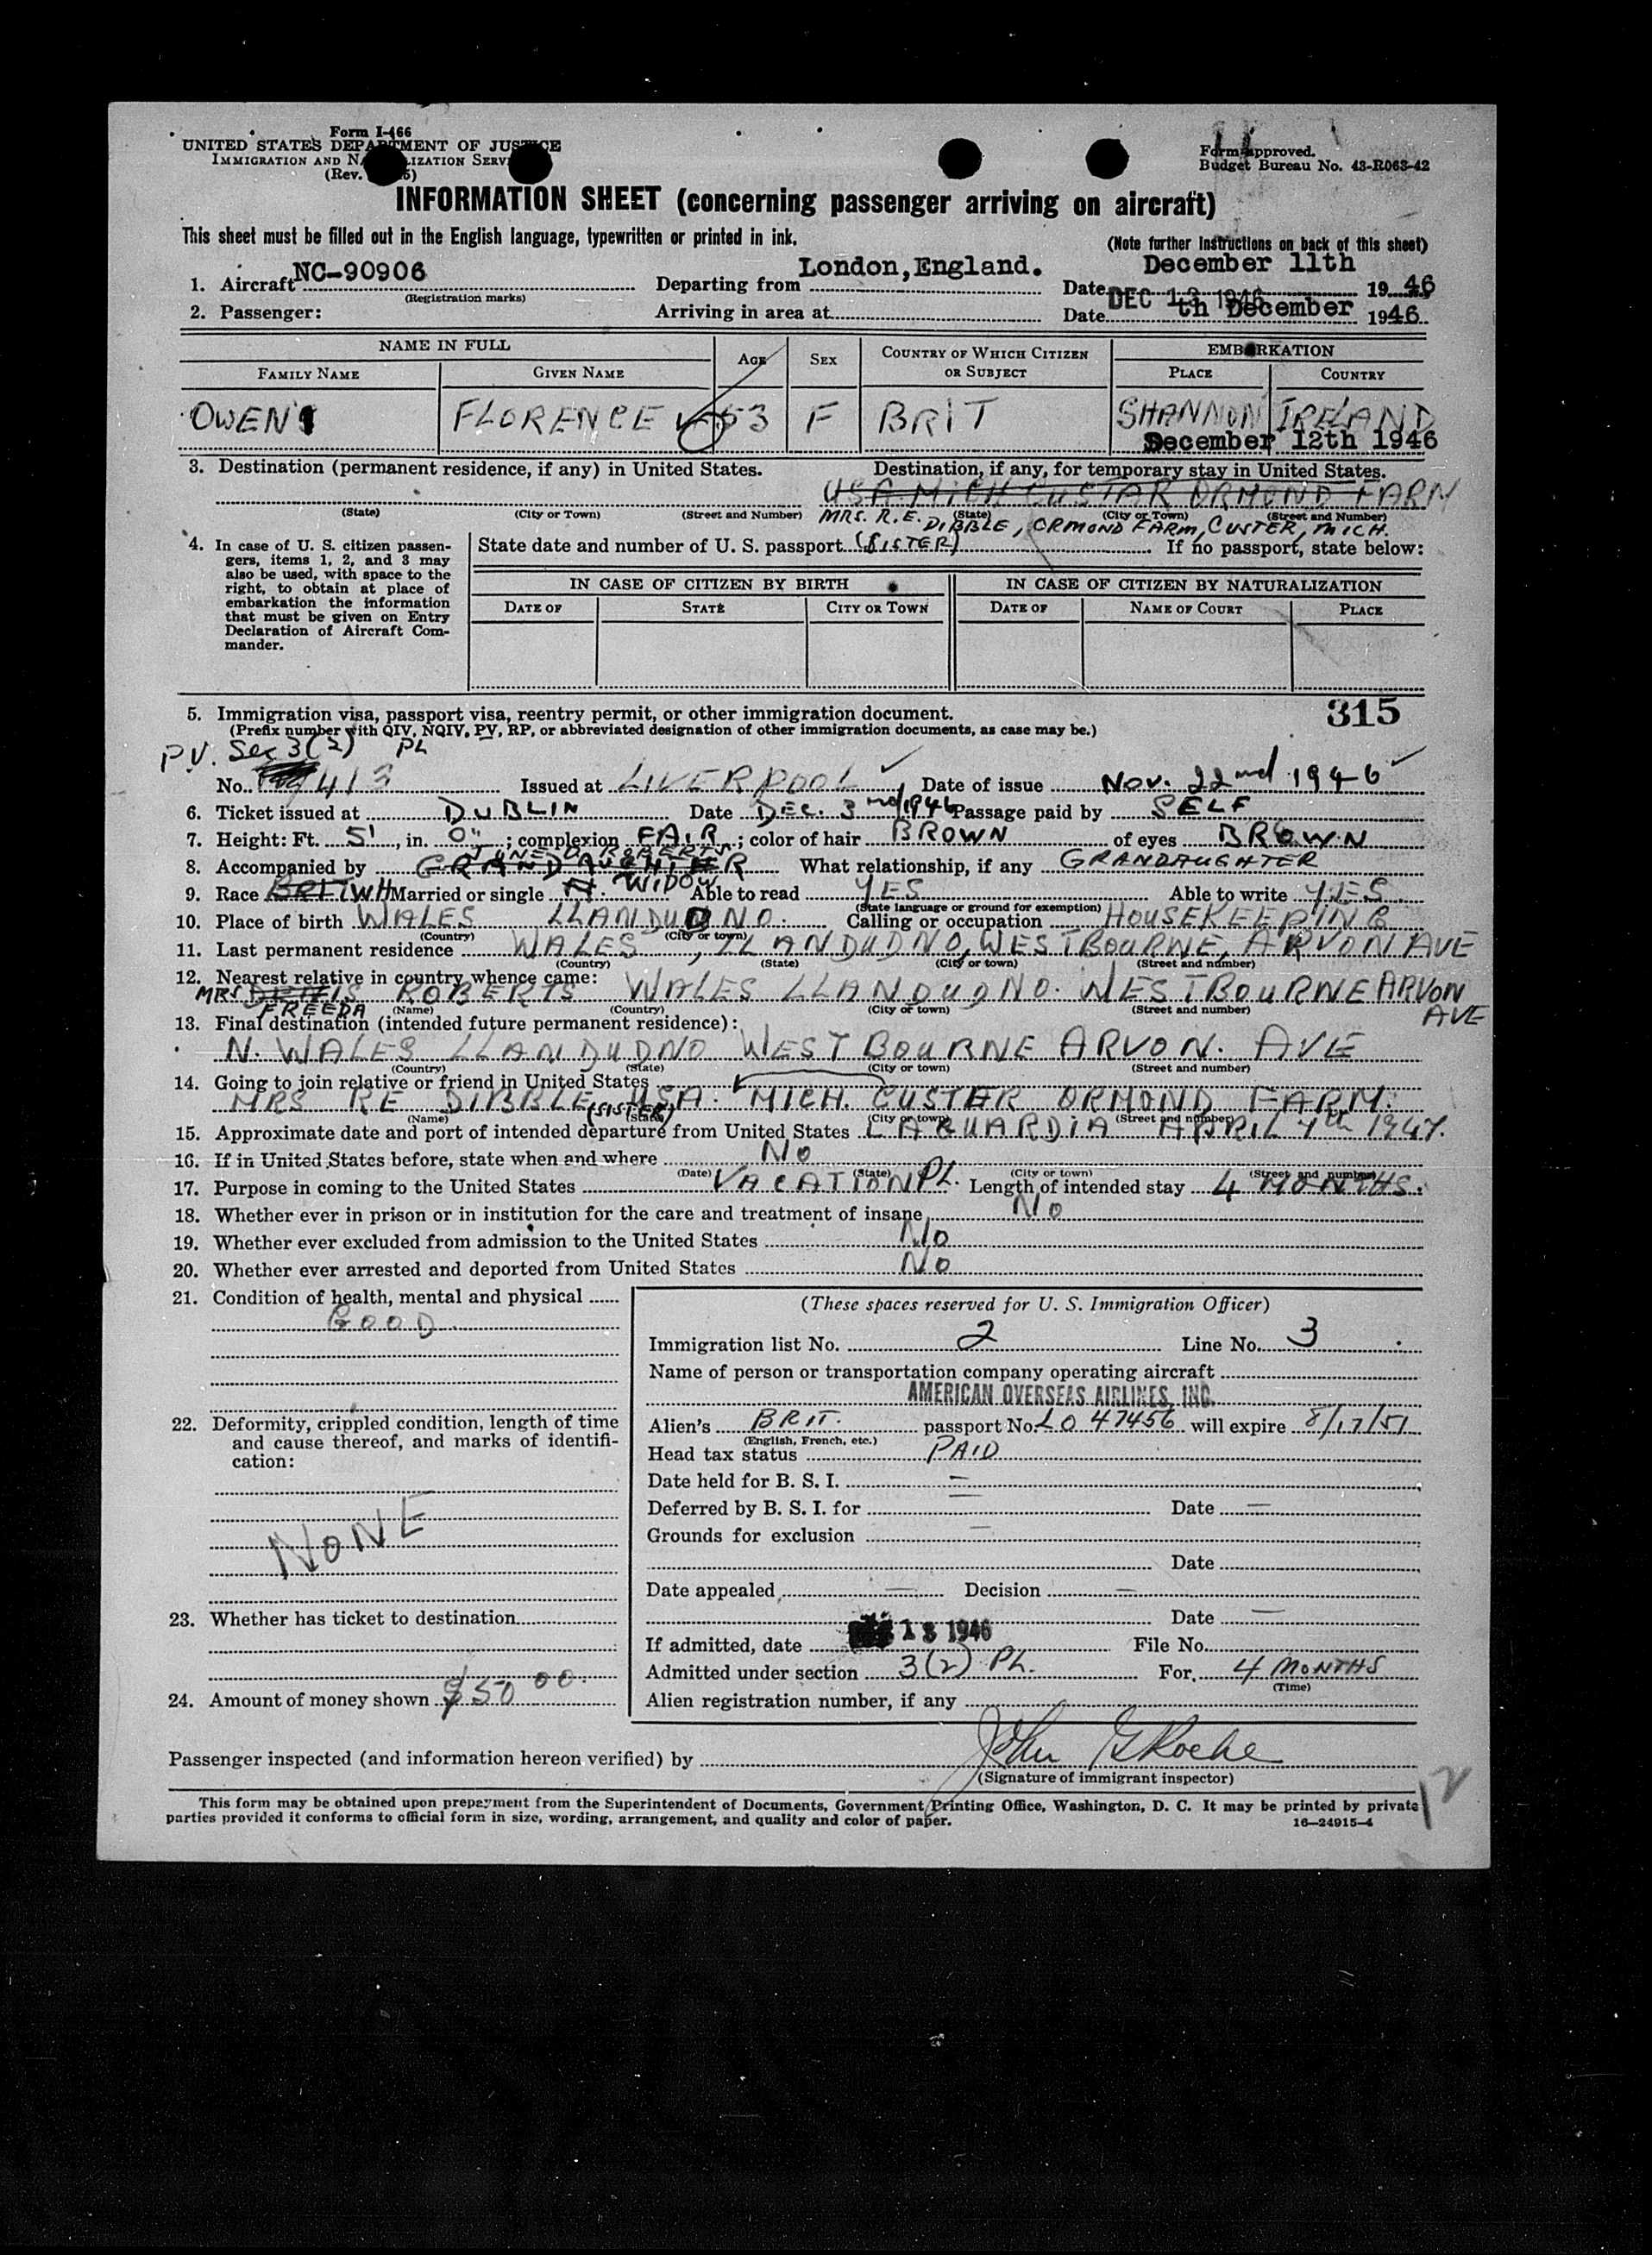 Form I-466
UNITED STATES DEPARTMENT OF JUSTICE
IMMIGRATION AND NATURALIZATION SERVICE
(Rev.
Form approved.
Budget Bureau No. 43-R063-42
INFORMATION SHEET (concerning passenger arriving on aircraft)
This sheet must be filled out in the English language, typewritten or printed in ink.
(Note further instructions on back of this sheet)
1. Aircraft NC-90906 Departing from London, England. Date December 11th 1946
(Registration marks)
2. Passenger: Arriving in area at Date DEC 13 1946 th December 1946
NAME IN FULL AGE SEX COUNTRY OF WHICH CITIZEN OR SUBJECT EMBARKATION
FAMILY NAME GIVEN NAME PLACE COUNTRY
OWEN FLORENCE 53 F BRIT SHANNON IRELAND
December 12th 1946
3. Destination (permanent residence, if any) in United States. Destination, if any, for temporary stay in United States.
USA. MICH CUSTAR ORMOND FARM
(State) (City or Town) (Street and Number) (State) (City or Town) (Street and Number)
MRS. R.E. DIBBLE, ORMOND FARM, CUSTER, MICH.
4. In case of U. S. citizen passengers, items 1, 2, and 3 may also be used, with space to the right, to obtain at place of embarkation the information that must be given on Entry Declaration of Aircraft Commander.
State date and number of U. S. passport (SISTER) If no passport, state below:
IN CASE OF CITIZEN BY BIRTH IN CASE OF CITIZEN BY NATURALIZATION
DATE OF STATE CITY OR TOWN DATE OF NAME OF COURT PLACE
315
5. Immigration visa, passport visa, reentry permit, or other immigration document.
(Prefix number with QIV, NQIV, PV, RP, or abbreviated designation of other immigration documents, as case may be.)
P.V. Sec 3(2) PL
No. 413 Issued at LIVERPOOL Date of issue Nov. 22nd 1946
6. Ticket issued at DUBLIN Date DEC. 3rd 1946 Passage paid by SELF
7. Height: Ft. 5', in. 0"; complexion FAIR; color of hair BROWN of eyes BROWN
JUNE D. ROBERTS
8. Accompanied by GRANDAUGHTER What relationship, if any GRANDAUGHTER
9. Race BRIT WH Married or single WIDOW Able to read YES Able to write YES.
(State language or ground for exemption)
10. Place of birth WALES LLANDUDNO. Calling or occupation HOUSEKEEPING
(Country) (City or town)
11. Last permanent residence WALES, LLANDUDNO, WESTBOURNE, ARVON AVE
(Country) (State) (City or town) (Street and number)
12. Nearest relative in country whence came:
MRS FREEDA ROBERTS WALES LLANDUDNO. WESTBOURNE ARVON AVE
(Name) (Country) (City or town) (Street and number)
13. Final destination (intended future permanent residence):
N. WALES LLANDUDNO WESTBOURNE ARVON. AVE
(Country) (State) (City or town) (Street and number)
14. Going to join relative or friend in United States
MRS RE DIBBLE (SISTER) USA. MICH. CUSTER ORMOND FARM.
(Name) (State) (City or town) (Street and number)
15. Approximate date and port of intended departure from United States LAGUARDIA APRIL 4th 1947.
16. If in United States before, state when and where No
(Date) (State) (City or town) (Street and number)
17. Purpose in coming to the United States VACATION PL. Length of intended stay 4 MONTHS.
18. Whether ever in prison or in institution for the care and treatment of insane No
19. Whether ever excluded from admission to the United States No
20. Whether ever arrested and deported from United States No
21. Condition of health, mental and physical
GOOD
22. Deformity, crippled condition, length of time and cause thereof, and marks of identification:
NONE
23. Whether has ticket to destination
24. Amount of money shown $50 00.
(These spaces reserved for U. S. Immigration Officer)
Immigration list No. 2 Line No. 3
Name of person or transportation company operating aircraft
AMERICAN OVERSEAS AIRLINES, INC.
Alien's BRIT. passport No. LO 47456 will expire 8/17/51
(English, French, etc.)
Head tax status PAID
Date held for B. S. I. —
Deferred by B. S. I. for — Date —
Grounds for exclusion —
Date
Date appealed — Decision —
Date —
If admitted, date 13 1946 File No.
Admitted under section 3(2) PL. For 4 MONTHS
(Time)
Alien registration number, if any
Passenger inspected (and information hereon verified) by John G Roche
(Signature of immigrant inspector)
This form may be obtained upon prepayment from the Superintendent of Documents, Government Printing Office, Washington, D. C. It may be printed by private
parties provided it conforms to official form in size, wording, arrangement, and quality and color of paper.
16—24915-4
12